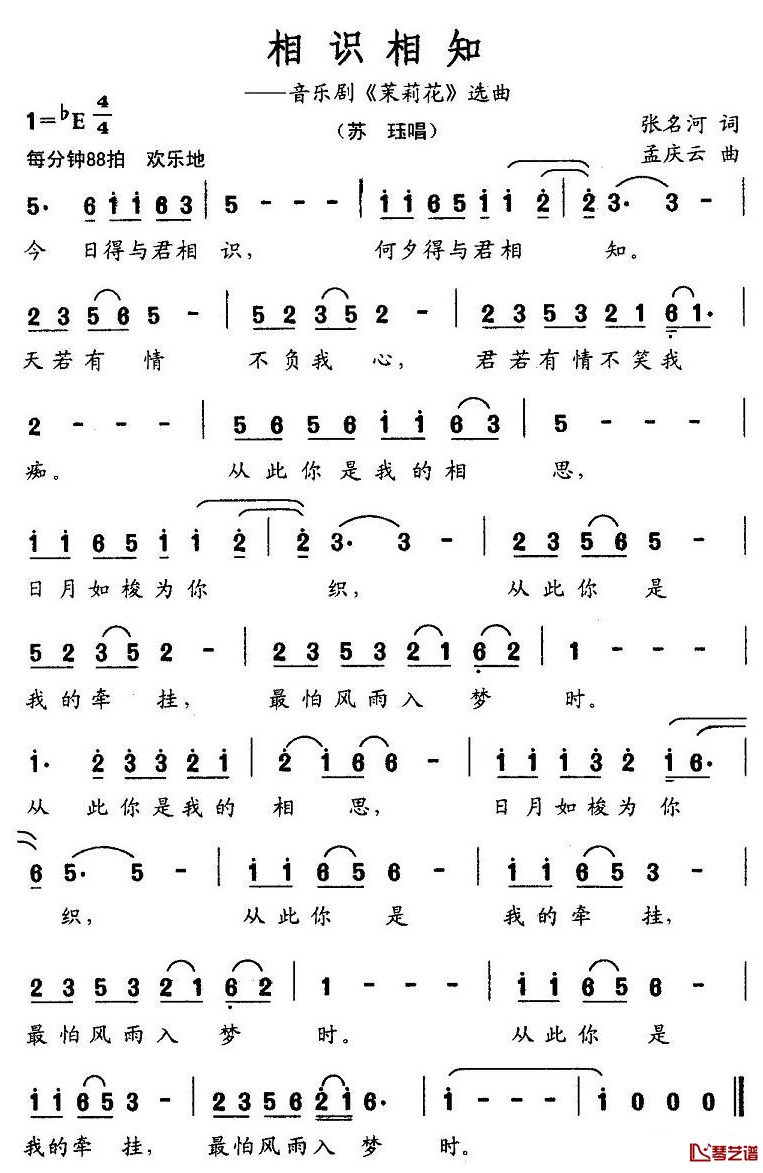 相识相知
——音乐剧《茉莉花》选曲
1=♭E 4/4
（苏 珏唱）
张名河 词
每分钟88拍 欢乐地
孟庆云 曲
5· 6 i i 6 3 | 5 - - - | i i 6 5 i i 2 | 2 3· 3 - |
今 日得与君相 识， 何夕得与君相 知。
2 3 5 6 5 - | 5 2 3 5 2 - | 2 3 5 3 2 1 6 1· |
天若有 情 不负我 心， 君若有情不笑我
2 - - - | 5 6 5 6 i i 6 3 | 5 - - - |
痴。 从此你是我的相 思，
i i 6 5 i i 2 | 2 3· 3 - | 2 3 5 6 5 - |
日月如梭为你 织， 从此你 是
5 2 3 5 2 - | 2 3 5 3 2 1 6 2 | 1 - - - |
我的牵 挂， 最怕风雨入 梦 时。
i· 2 3 3 2 i | 2 i 6 6 - | i i i 3 2 i 6· |
从 此你是我的 相 思， 日月如梭为你
6 5· 5 - | i i 6 5 6 - | i i 6 5 3 - |
织， 从此你 是 我的牵 挂，
2 3 5 3 2 1 6 2 | 1 - - - | i i 6 5 6 - |
最怕风雨入 梦 时。 从此你 是
i i 6 5 3 - | 2 3 5 6 2 i 6· | i - - - | i 0 0 0 ‖
我的牵 挂， 最怕风雨入 梦 时。
琴艺谱